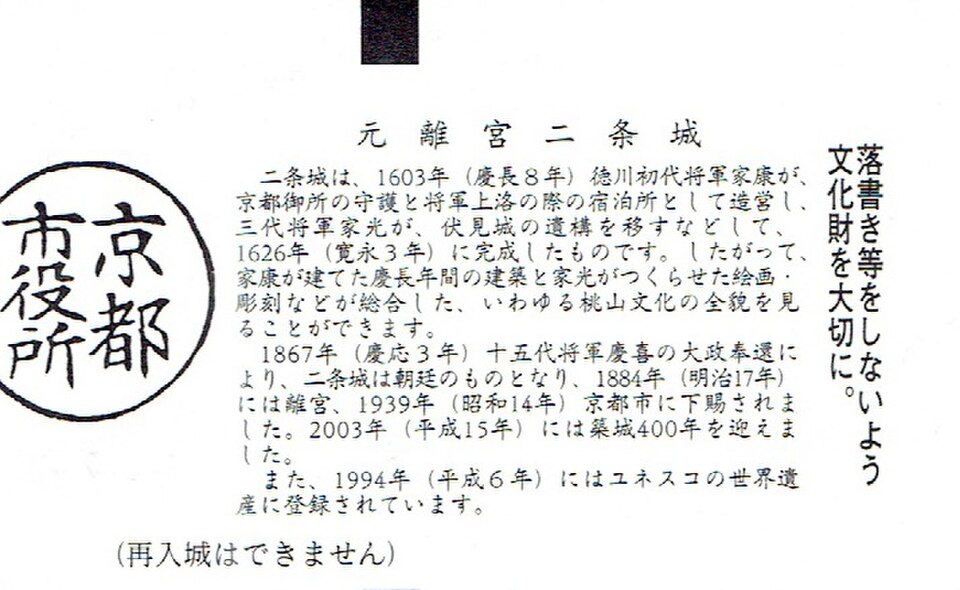 元離宮二条城
二条城は、1603年（慶長８年）徳川初代将軍家康が、
京都御所の守護と将軍上洛の際の宿泊所として造営し、
三代将軍家光が、伏見城の遺構を移すなどして、
1626年（寛永３年）に完成したものです。したがって、
家康が建てた慶長年間の建築と家光がつくらせた絵画・
彫刻などが総合した、いわゆる桃山文化の全貌を見
ることができます。
1867年（慶応３年）十五代将軍慶喜の大政奉還に
より、二条城は朝廷のものとなり、1884年（明治17年）
には離宮、1939年（昭和14年）京都市に下賜されま
した。2003年（平成15年）には築城400年を迎えま
した。
また、1994年（平成６年）にはユネスコの世界遺
産に登録されています。
落書き等をしないよう
文化財を大切に。
京都
市役所
（再入城はできません）